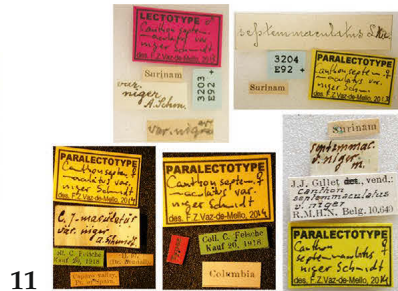 LECTOTYPE ♂
Canthon septem-
maculatus var.
niger Schmidt
des. F.Z. Vaz-de-Mello, 2014
Surinam
3203
E92 +
var.
niger
A. Schm.
var. niger
septemmaculatus
3204
E92 +
Surinam
PARALECTOTYPE ♀
Canthon septem-
maculatus var.
niger Schmidt
des. F.Z. Vaz-de-Mello, 2014
PARALECTOTYPE
Canthon septem-
maculatus var.
niger Schmidt
des. F.Z. Vaz-de-Mello, 2014
C. 7-maculatus
var. niger
A. Schmidt
Coll. C. Felsche
Kauf 20, 1918
PARALECTOTYPE ♀
Canthon septem-
maculatus var.
niger Schmidt
des. F.Z. Vaz-de-Mello, 2014
Coll. C. Felsche
Kauf 20, 1918
Columbia
Surinam
septemmac.
v. niger
m.
J.J. Gillet det., vend.:
Canthon
septemmaculatus
v. niger
R.M.H.N. Belg. 10,640
PARALECTOTYPE
Canthon
septem-maculatus
niger Schmidt
des. F.Z. Vaz-de-Mello, 2014
11